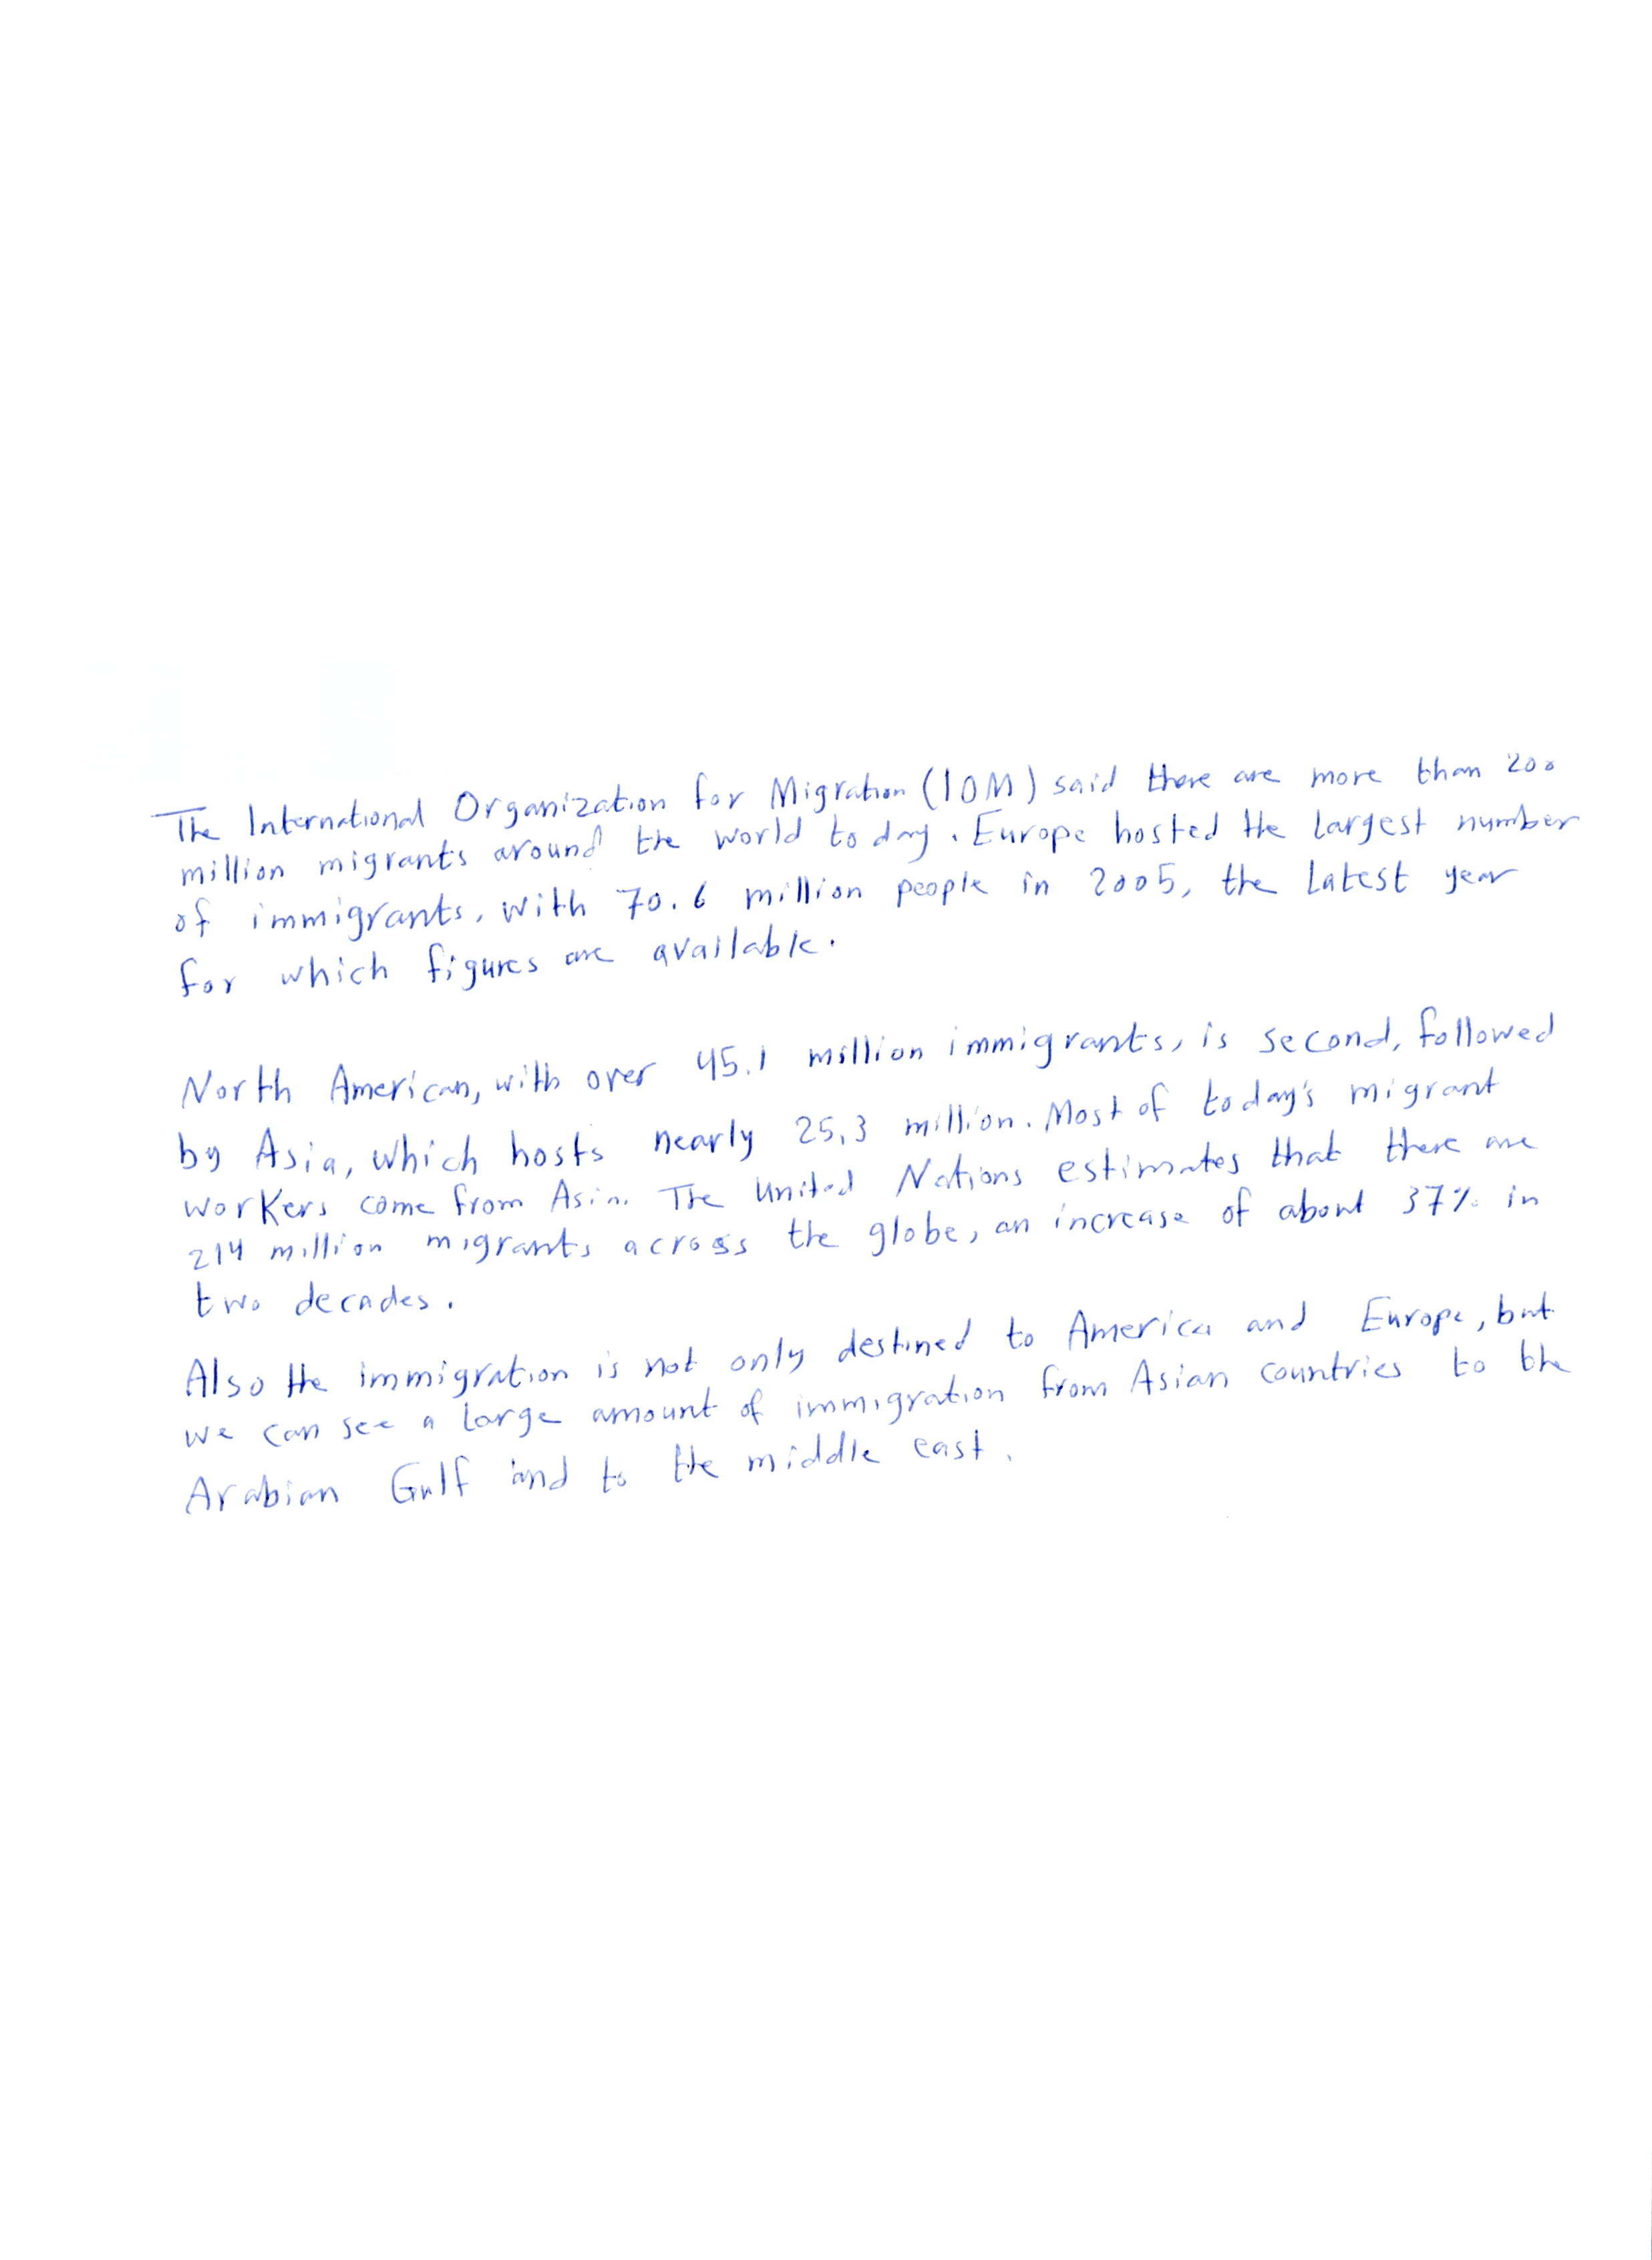 The International Organization for Migration (IOM) said there are more than 200
million migrants around the world today. Europe hosted the largest number
of immigrants, with 70.6 million people in 2005, the latest year
for which figures are available.
North American, with over 45.1 million immigrants, is second, followed
by Asia, which hosts nearly 25.3 million. Most of today's migrant
workers come from Asia. The United Nations estimates that there are
214 million migrants across the globe, an increase of about 37% in
two decades.
Also the immigration is not only destined to America and Europe, but
we can see a large amount of immigration from Asian countries to the
Arabian Gulf and to the middle east.